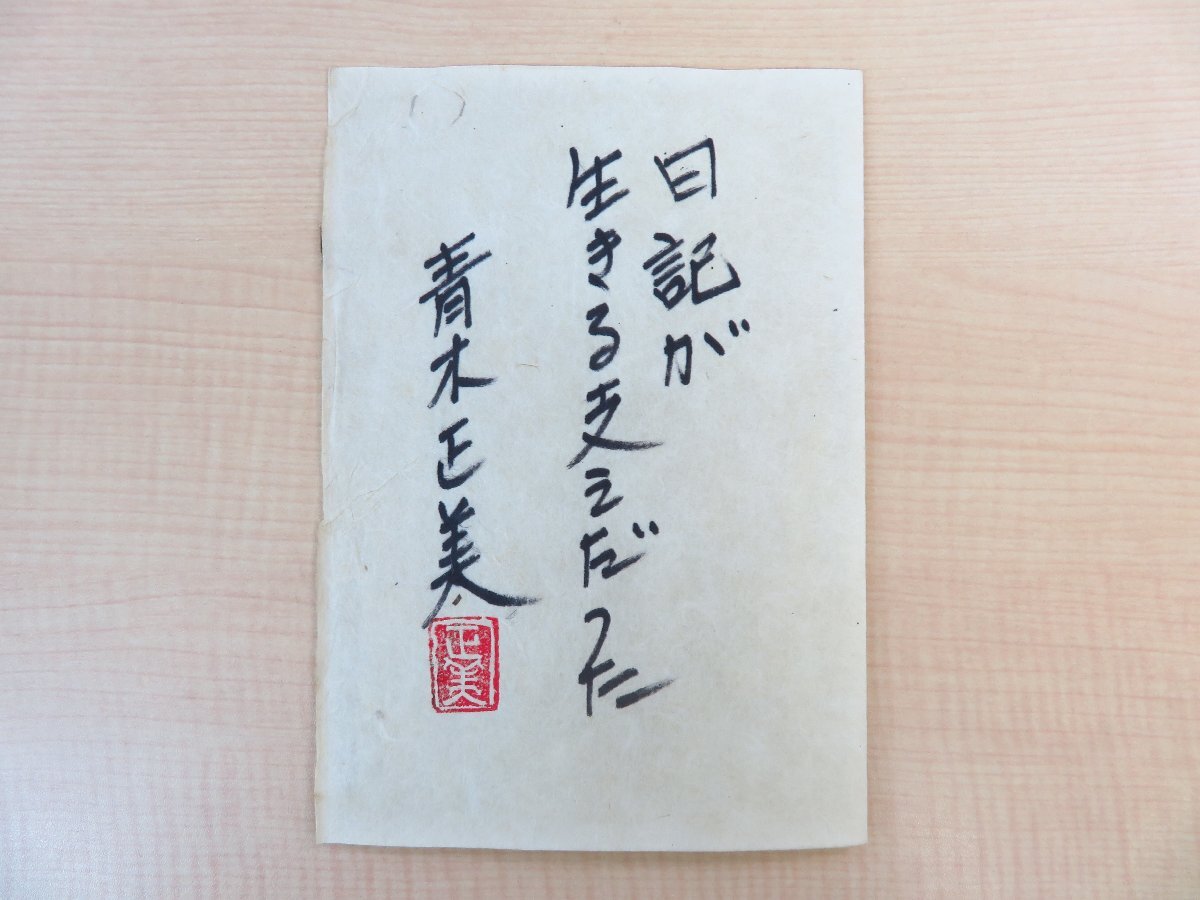 日記が
生きる支えだった
青木正美
正美